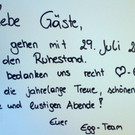 iebe Gäste,
gehen mit 29. Juli 2
den Ruhestand.
bedanken uns recht ♡-
die jahrelange Treue, schönen
e und lustigen Abende!
Euer
Egg-Team